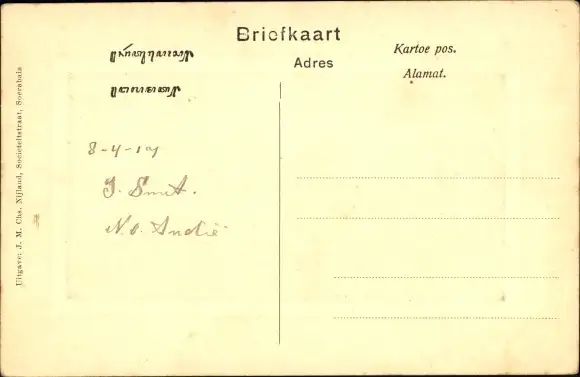 Briefkaart
Adres
Kartoe pos.
Alamat.
8-4-19
J. Smit.
N.O. Indië
Uitgave: J. M. Chs. Nijland, Societeitstraat, Soerabaia